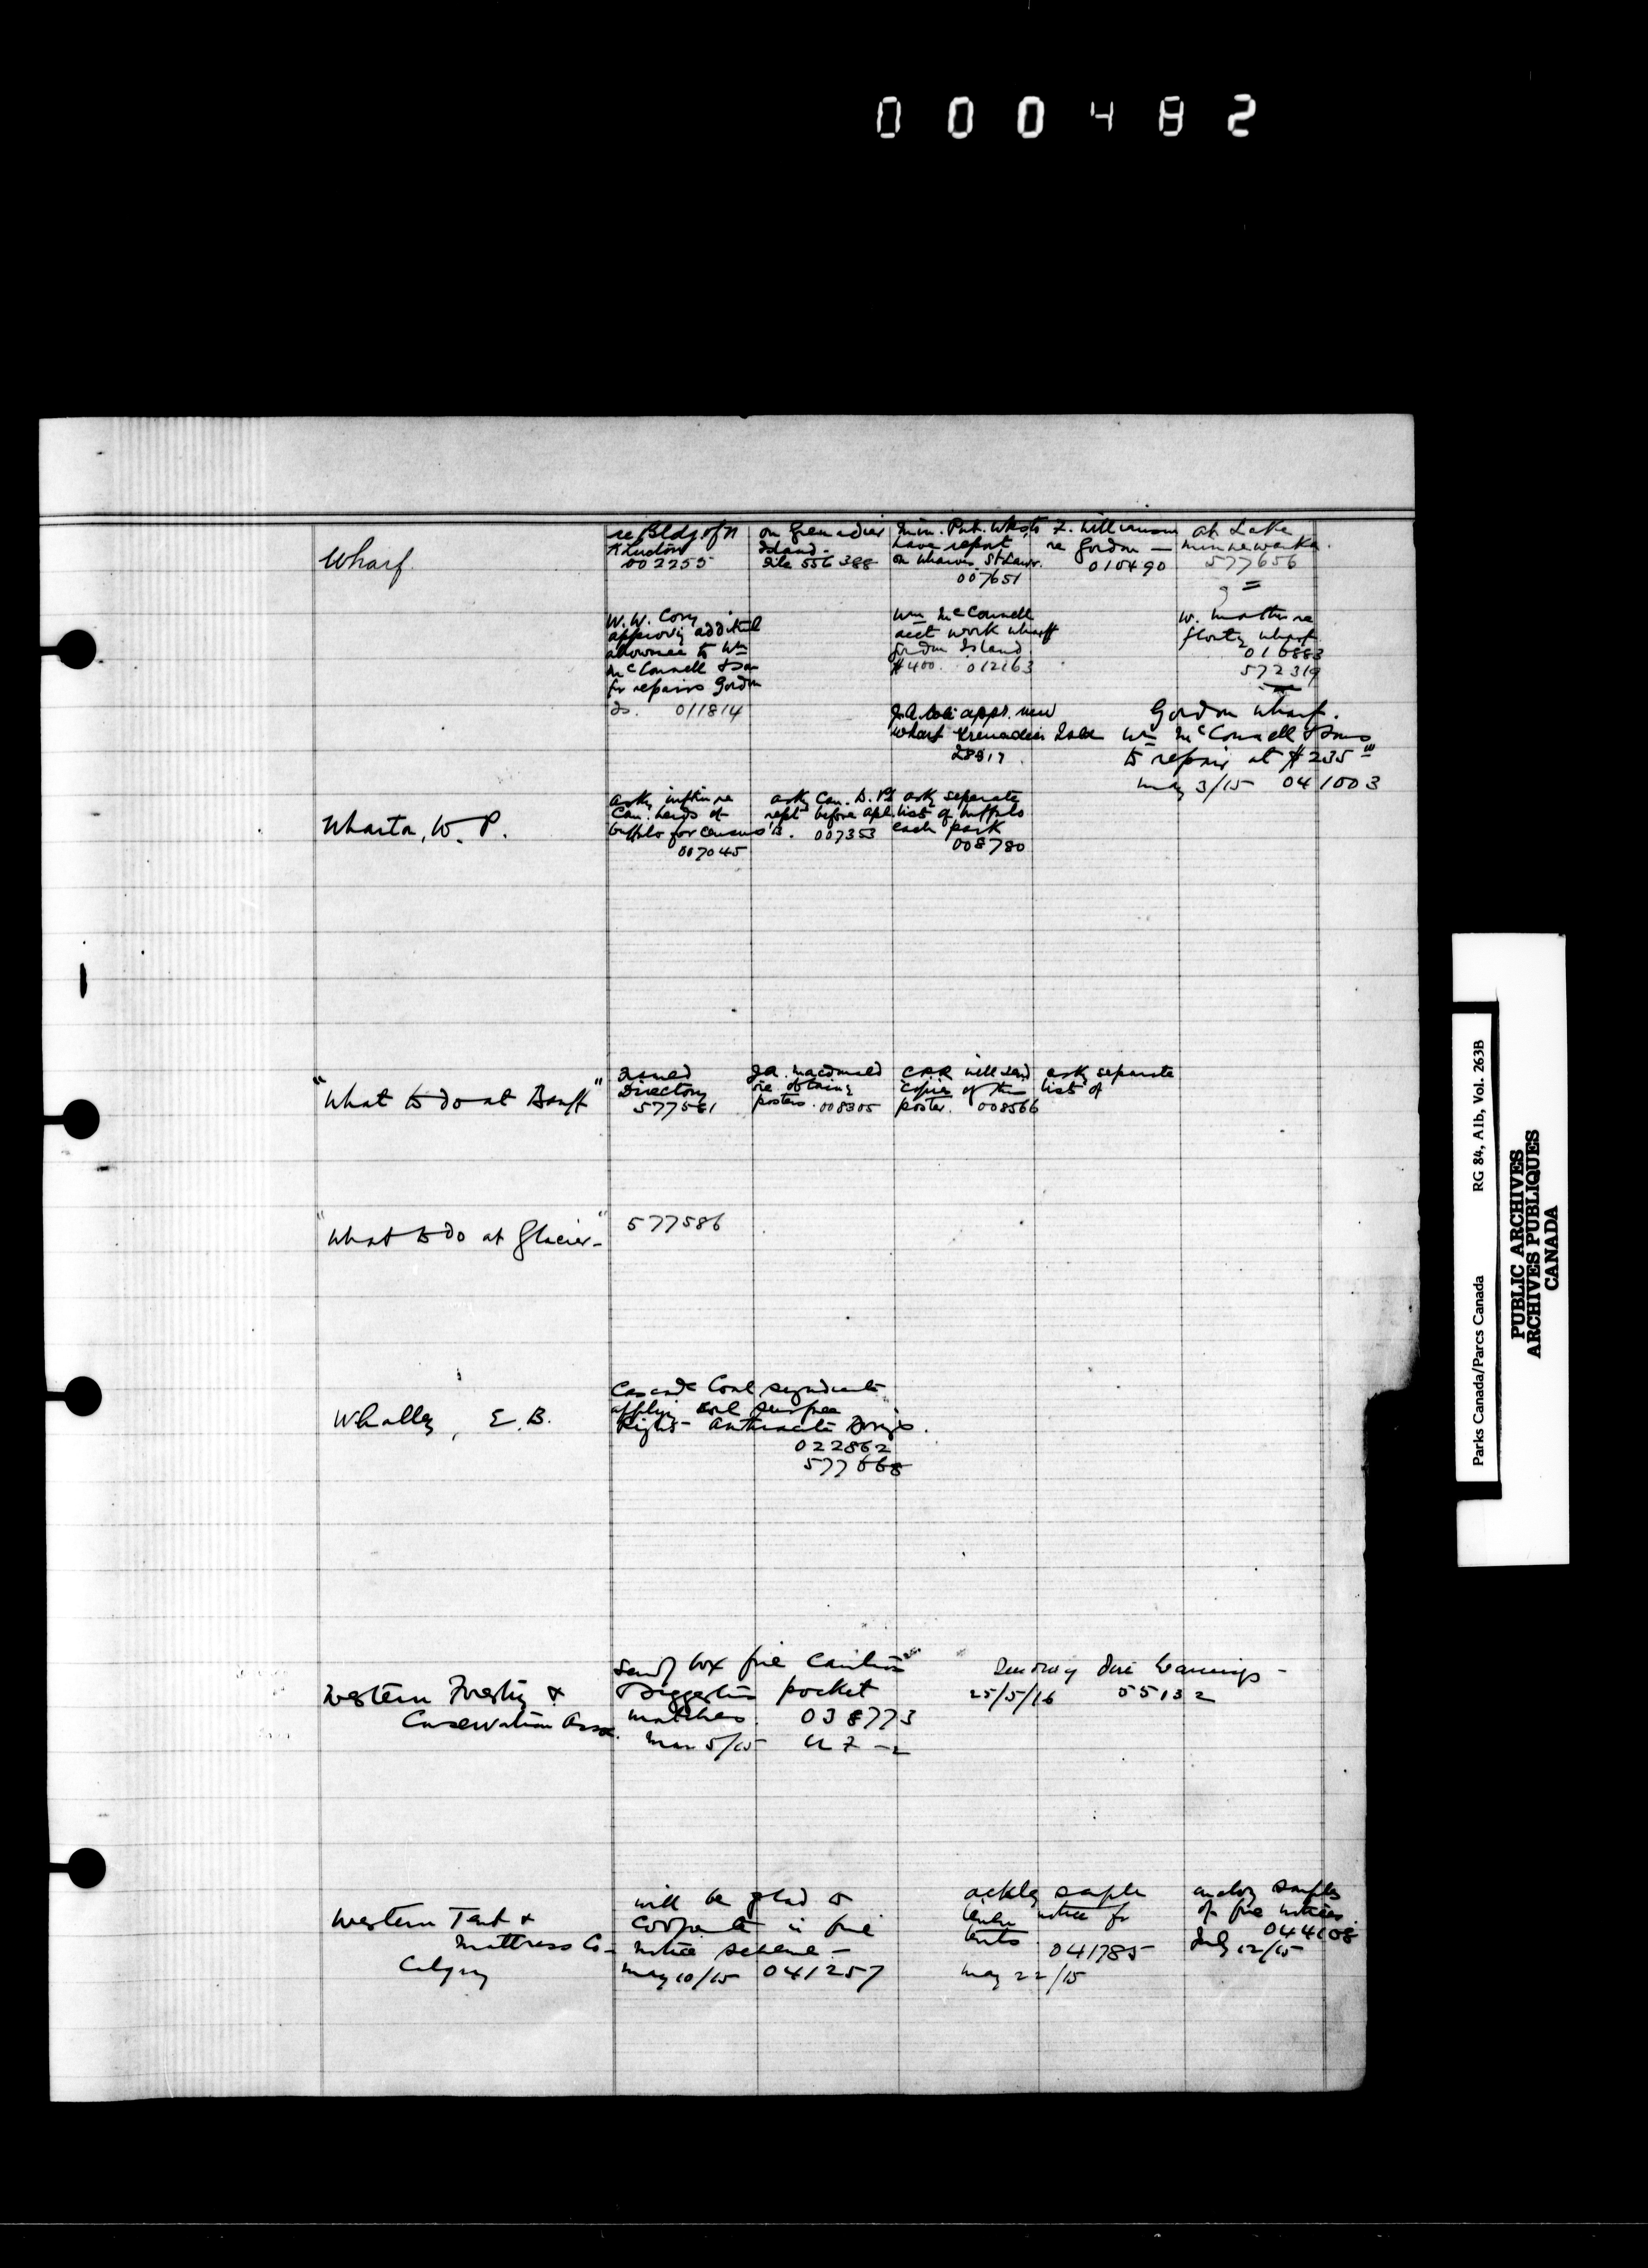 000482
Wharf
re Bldg of
002255
on Grenadier
Island -
file 556388
Min. Pub. Wks to
have report
on wharves St Lawr.
007651
F. Williamson
re Gordon —
010490
at Lake
Minnewanka.
577656
W. W. Cory
approvg additnl
allowance to Wm
McConnell & Son
for repairs Gordon
Is. 011814
Wm McConnell
acct work wharf
Gordon Island
$400. 012163
W. Mather re
floatg wharf
016883
572319
appr. new
wharf Grenadier Isld
28917
Gordon Wharf.
Wm McConnell & Sons
to repair at $235
May 3/15 041003
Wharton, W. P.
asks inftn re
Can. herds of
buffalo for census
007045
asks Can. B. P.
rept before
B. 007353
asks separate
list of buffalo
each park
008780
"What to do at Banff"
Issued
Directory
577581
J.A. Macdonald
re obtaing
posters. 008305
CPR will send
copies of this
poster. 008566
ask separate
list of
"What to do at Glacier"
577586
Whalley, E. B.
Cascade Coal Syndicate
applyg coal surface
Rights - Anthracite
022862
577668
Western Forestry &
Conservation Assn.
Sendg box fire caution
& Suggestion pocket
matches. 038773
Mar 5/15
fire warnings -
25/5/16 55132
Western Tent &
Mattress Co -
Calgary
will be glad to
cooperate in fire
notice scheme -
May 10/15 041257
ackdg sample
linen notice for
tents 041785
May 22/15
enclosg samples
of fire notices
044108
July 12/15
Parks Canada/Parcs Canada RG 84, Alb, Vol. 263B
PUBLIC ARCHIVES
ARCHIVES PUBLIQUES
CANADA